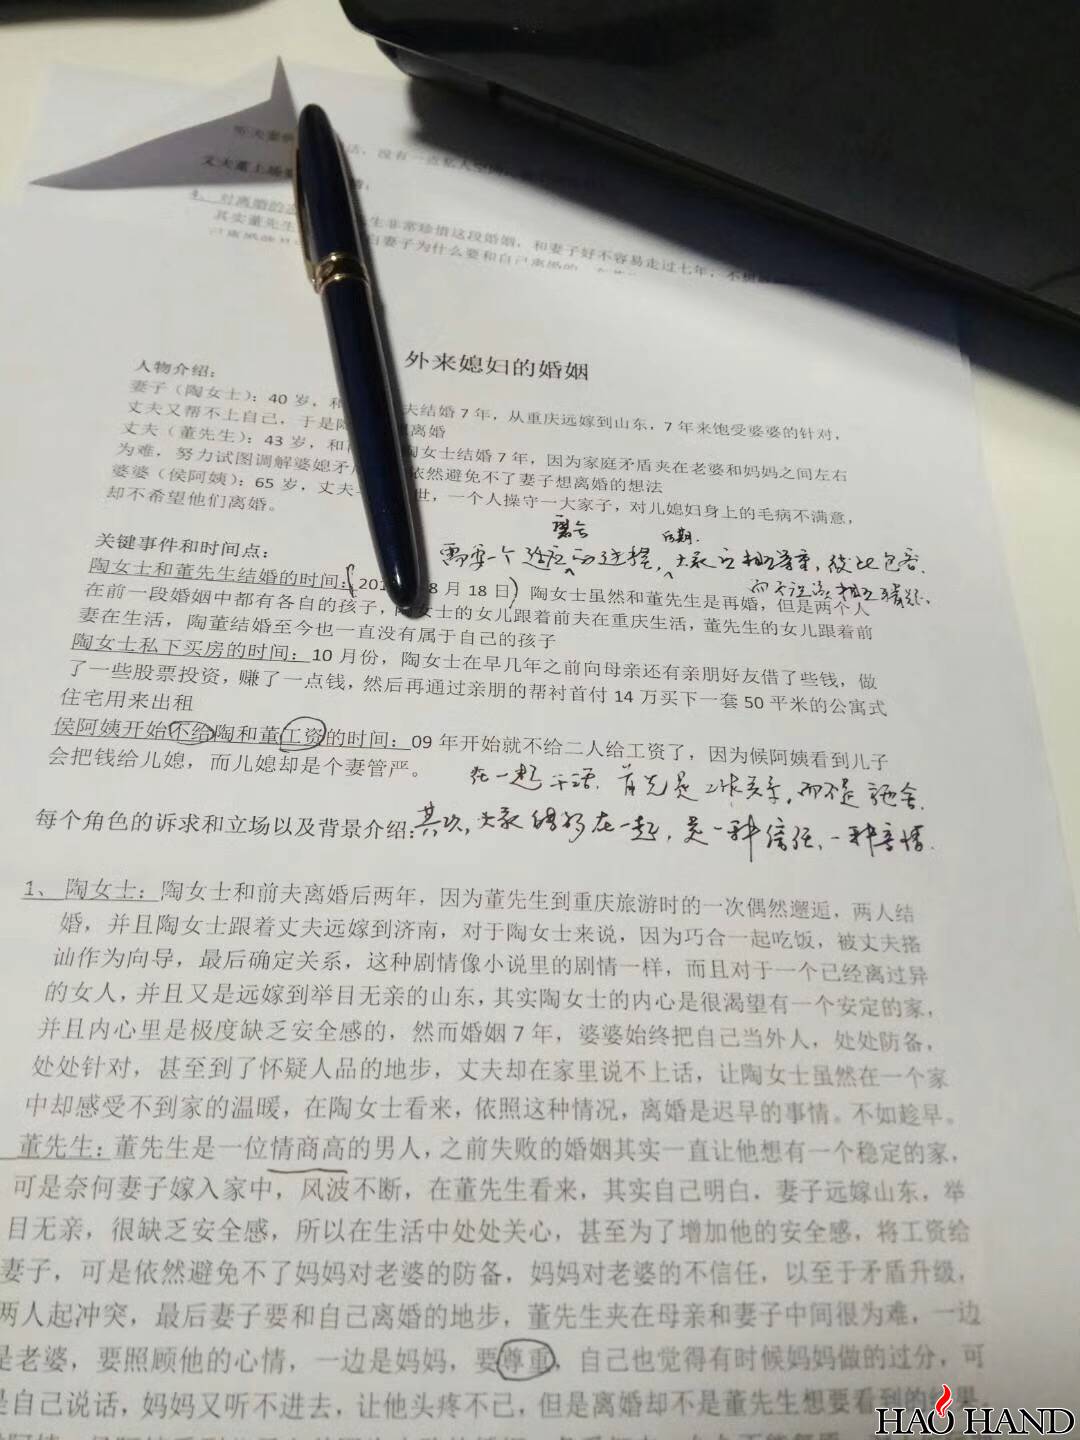 丈夫董上场
4、对离婚的
其实董先生 生非常珍惜这段婚姻，和妻子好不容易走过七年，不想
白妻子为什么要和自己离婚的
外来媳妇的婚姻
人物介绍：
妻子（陶女士）：40 岁，和 夫结婚 7 年，从重庆远嫁到山东，7 年来饱受婆婆的针对，
丈夫又帮不上自己，于是陶 离婚
丈夫（董先生）：43 岁，和 陶女士结婚 7 年，因为家庭矛盾夹在老婆和妈妈之间左右
为难，努力试图调解婆媳矛 依然避免不了妻子想离婚的想法
婆婆（侯阿姨）：65 岁，丈夫 世，一个人操守一大家子，对儿媳妇身上的毛病不满意，
却不希望他们离婚。
磨合 后期.
需要一个适应的过程，大家应相互尊重，彼此包容.
而不该该相互猜疑、
关键事件和时间点：
陶女士和董先生结婚的时间：（201 8 月 18 日）陶女士虽然和董先生是再婚，但是两个人
在前一段婚姻中都有各自的孩子， 女士的女儿跟着前夫在重庆生活，董先生的女儿跟着前
妻在生活，陶董结婚至今也一直没有属于自己的孩子
陶女士私下买房的时间：10 月份，陶女士在早几年之前向母亲还有亲朋好友借了些钱，做
了一些股票投资，赚了一点钱，然后再通过亲朋的帮衬首付 14 万买下一套 50 平米的公寓式
住宅用来出租
侯阿姨开始不给陶和董工资的时间：09 年开始就不给二人给工资了，因为候阿姨看到儿子
会把钱给儿媳，而儿媳却是个妻管严。
在一起干活.首先是工作关系，而不是施舍.
每个角色的诉求和立场以及背景介绍：
其次，大家能够在一起，是一种信任、一种亲情.
1、陶女士：陶女士和前夫离婚后两年，因为董先生到重庆旅游时的一次偶然邂逅，两人结
婚，并且陶女士跟着丈夫远嫁到济南，对于陶女士来说，因为巧合一起吃饭，被丈夫搭
讪作为向导，最后确定关系，这种剧情像小说里的剧情一样，而且对于一个已经离过异
的女人，并且又是远嫁到举目无亲的山东，其实陶女士的内心是很渴望有一个安定的家，
并且内心里是极度缺乏安全感的，然而婚姻 7 年，婆婆始终把自己当外人，处处防备，
处处针对，甚至到了怀疑人品的地步，丈夫却在家里说不上话，让陶女士虽然在一个家
中却感受不到家的温暖，在陶女士看来，依照这种情况，离婚是迟早的事情。不如趁早。
董先生：董先生是一位情商高的男人，之前失败的婚姻其实一直让他想有一个稳定的家，
可是奈何妻子嫁入家中，风波不断，在董先生看来，其实自己明白，妻子远嫁山东，举
目无亲，很缺乏安全感，所以在生活中处处关心，甚至为了增加他的安全感，将工资给
妻子，可是依然避免不了妈妈对老婆的防备，妈妈对老婆的不信任，以至于矛盾升级，
两人起冲突，最后妻子要和自己离婚的地步，董先生夹在母亲和妻子中间很为难，一边
是老婆，要照顾他的心情，一边是妈妈，要尊重，自己也觉得有时候妈妈做的过分，可
是自己说话，妈妈又听不进去，让他头疼不已，但是离婚却不是董先生想要看到的结果
HAO HAND